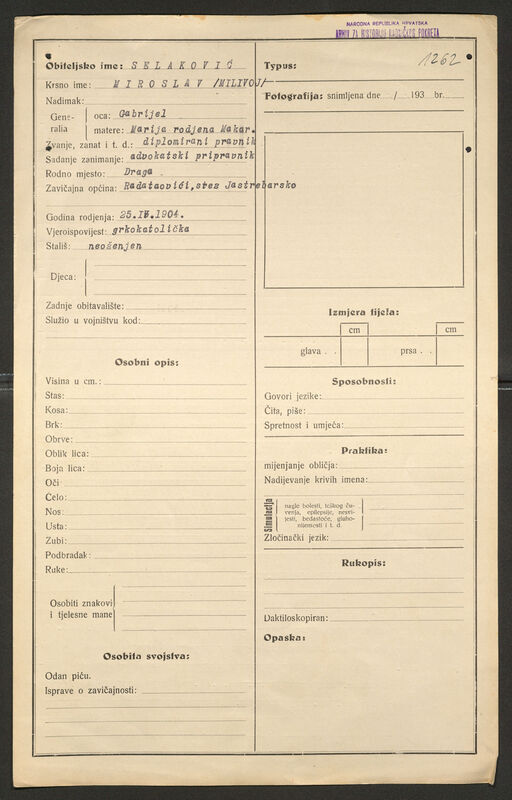 NARODNA REPUBLIKA HRVATSKA
ARHIV ZA HISTORIJU RADNIČKOG POKRETA
1262
Obiteljsko ime: SELAKOVIĆ
Krsno ime: MIROSLAV /MILIVOJ/
Nadimak:
Generalia
oca: Gabrijel
matere: Marija rodjena Makar.
Zvanje, zanat i t. d.: diplomirani pravnik
Sadanje zanimanje: advokatski pripravnik
Rodno mjesto: Draga
Zavičajna općina: Radataovići, srez Jastrebarsko
Godina rodjenja: 25.IV.1904.
Vjeroispovijest: grkokatolička
Stališ: neoženjen
Djeca:
Zadnje obitavalište:
Služio u vojništvu kod:
Osobni opis:
Visina u cm.:
Stas:
Kosa:
Brk:
Obrve:
Oblik lica:
Boja lica:
Oči
Čelo:
Nos:
Usta:
Zubi:
Podbradak:
Ruke:
Osobiti znakovi
i tjelesne mane
Osobita svojstva:
Odan piću.
Isprave o zavičajnosti:
Typus:
Fotografija: snimljena dne / 193 br.
Izmjera tijela:
cm cm
glava . . prsa . .
Sposobnosti:
Govori jezike:
Čita, piše:
Spretnost i umjeća:
Praktika:
mijenjanje obličja:
Nadijevanje krivih imena:
Simulacija
nagle bolesti, teškog ču-
venja, epilepsije, nesvi-
jesti, bedastoće, gluho-
nijemosti i t. d.
Zločinački jezik:
Rukopis:
Daktiloskopiran:
Opaska: